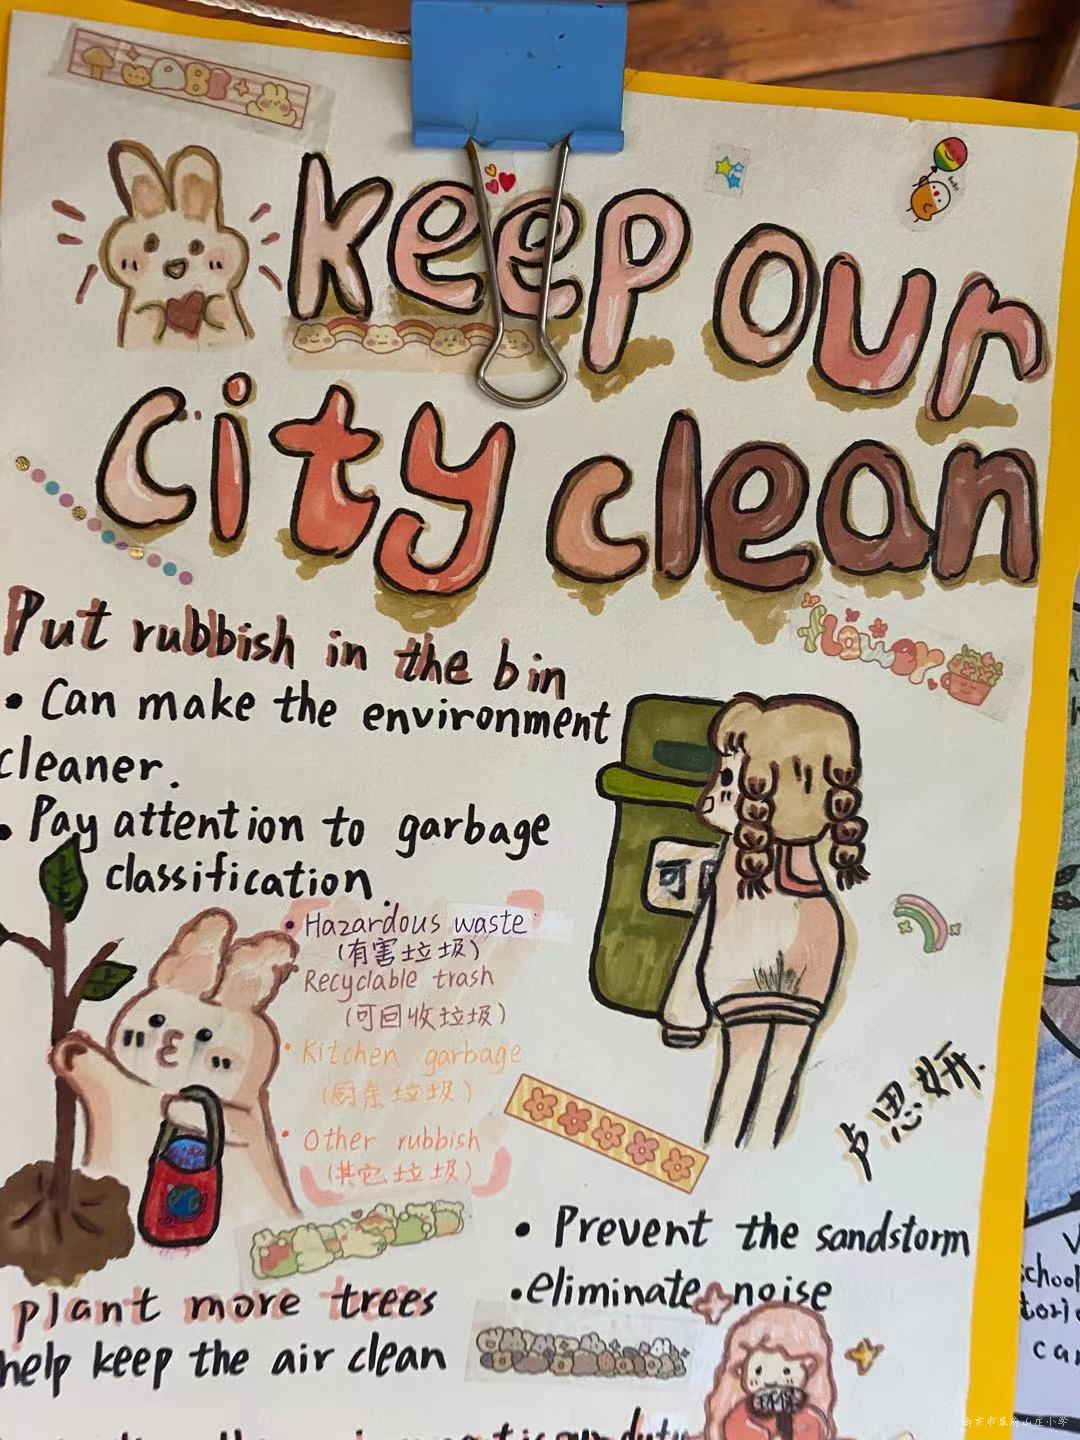 keep our
city clean
Put rubbish in the bin
• Can make the environment
cleaner.
• Pay attention to garbage
classification.
• Hazardous waste
(有害垃圾)
Recyclable trash
(可回收垃圾)
• Kitchen garbage
(厨余垃圾)
• Other rubbish
(其它垃圾)
可
卢思妍
• Prevent the sandstorm
• eliminate noise
plant more trees
help keep the air clean
flower
环保
school
can
南京市幕府山庄小学